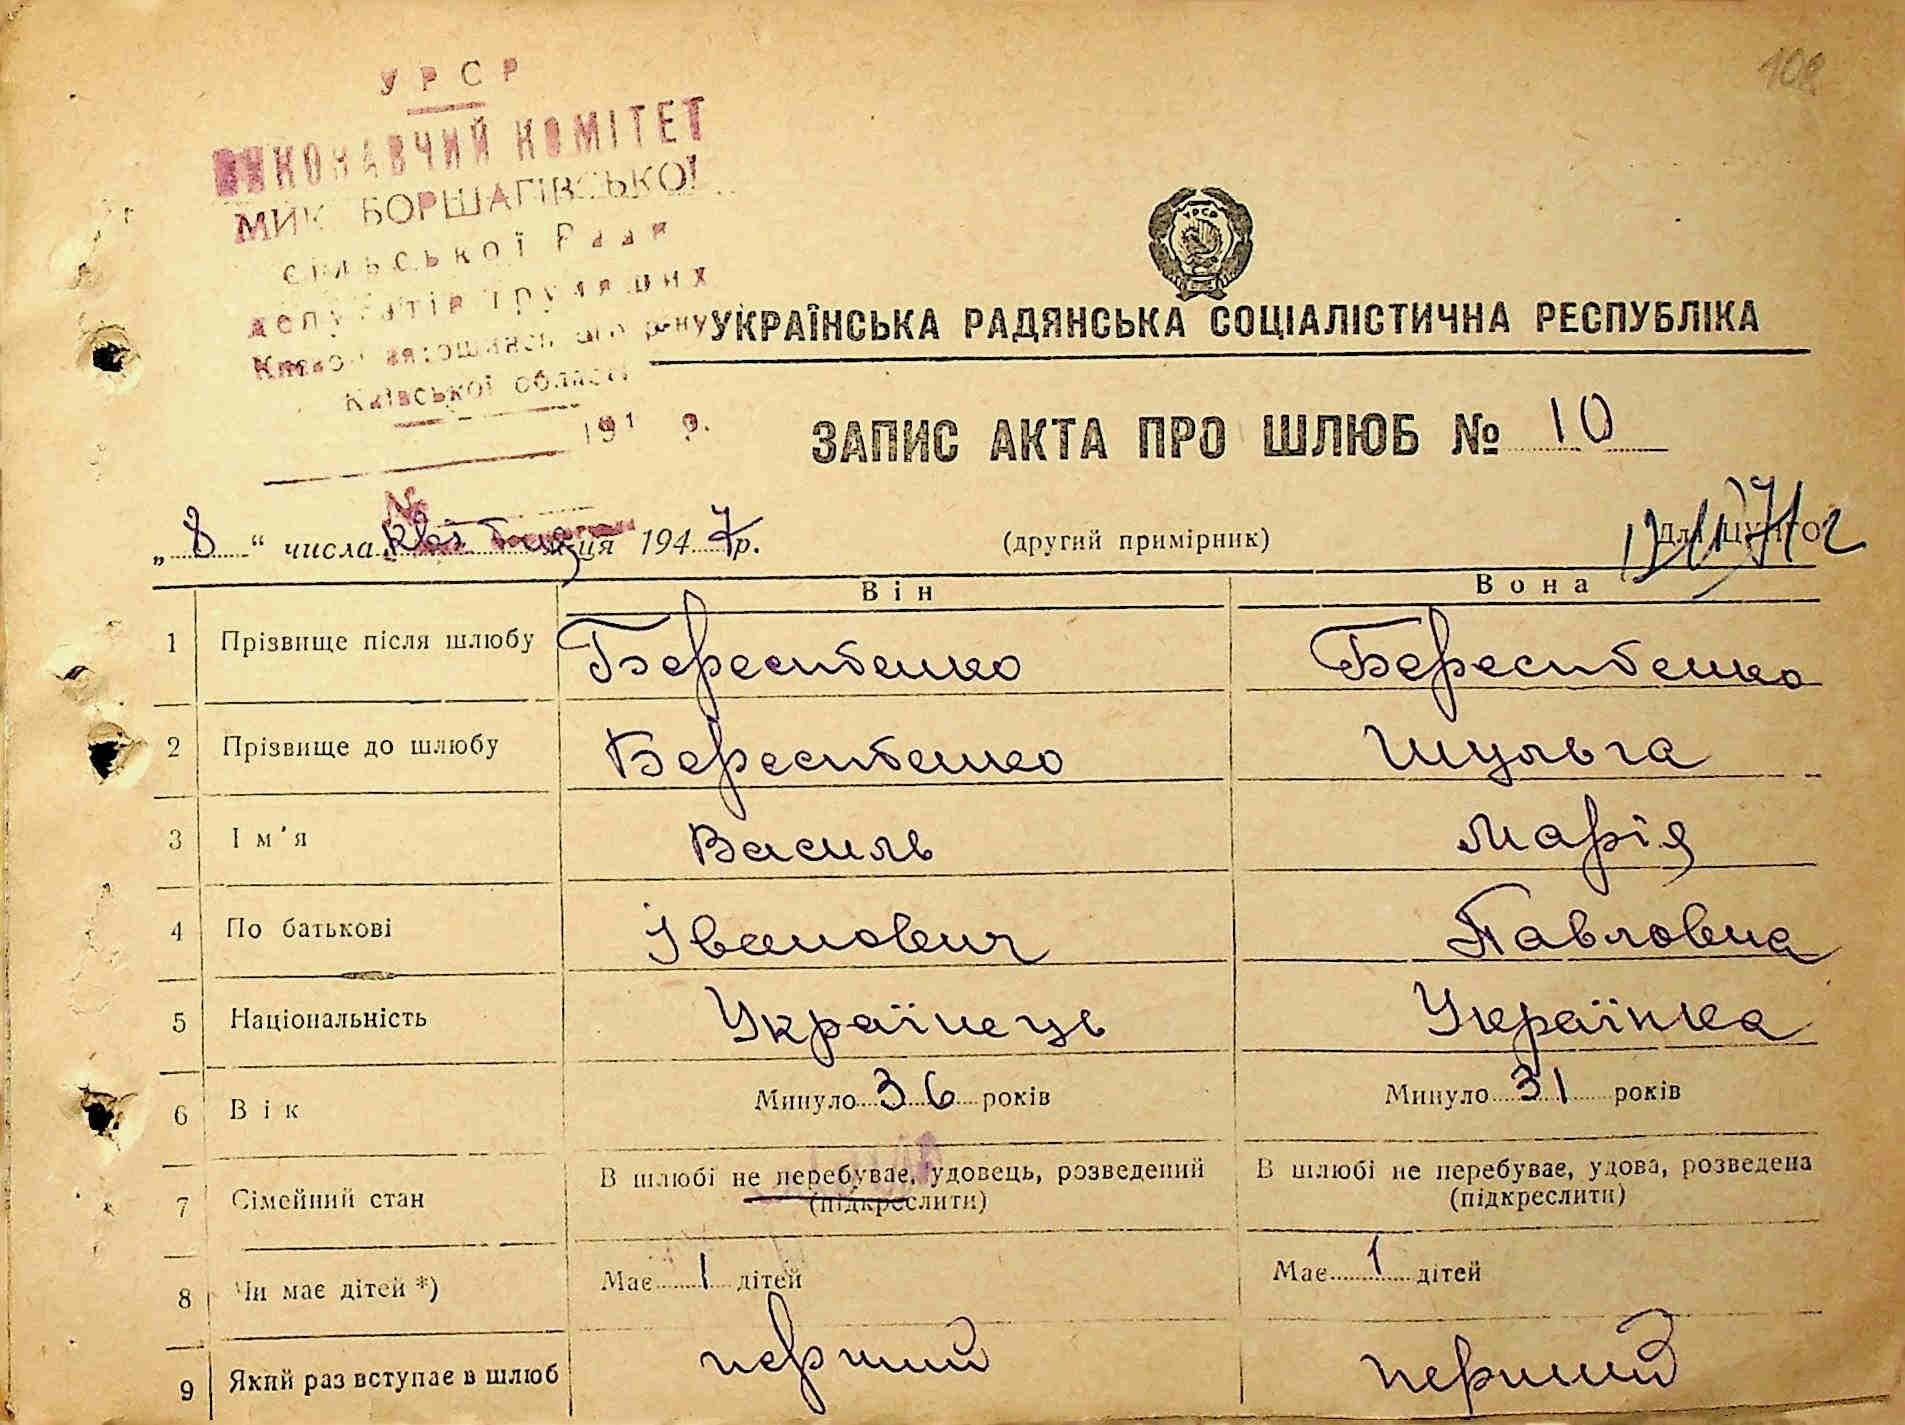 108
УРСР
ВИКОНАВЧИЙ КОМІТЕТ
МИК БОРЩАГІВСЬКОЇ
сільської Ради
депутатів трудящих
Києво-Святошинського р-ну
Київської області
191 р.
№
УРСР
УКРАЇНСЬКА РАДЯНСЬКА СОЦІАЛІСТИЧНА РЕСПУБЛІКА
ЗАПИС АКТА ПРО ШЛЮБ № 10
„8“ числа квітня місяця 1947р. (другий примірник)
Він Вона
1 Прізвище після шлюбу Берестбенко Берестбенко
2 Прізвище до шлюбу Берестбенко Шульга
3 Ім'я Василь Марія
4 По батькові Іванович Павловна
5 Національність Українець Українка
6 Вік Минуло 36 років Минуло 31 років
7 Сімейний стан В шлюбі не перебуває, удовець, розведений (підкреслити) В шлюбі не перебуває, удова, розведена (підкреслити)
8 Чи має дітей *) Має 1 дітей Має 1 дітей
9 Який раз вступає в шлюб перший перший